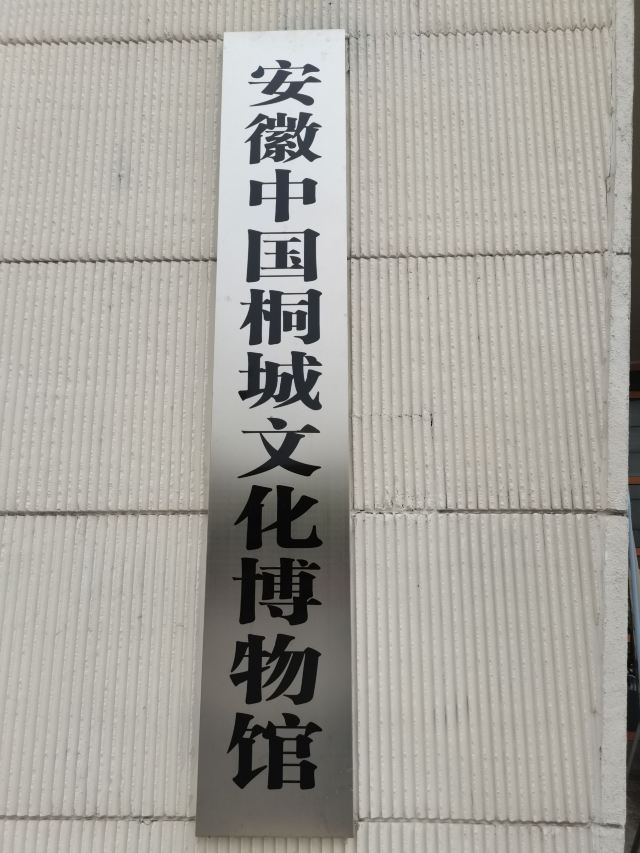 安徽中国桐城文化博物馆